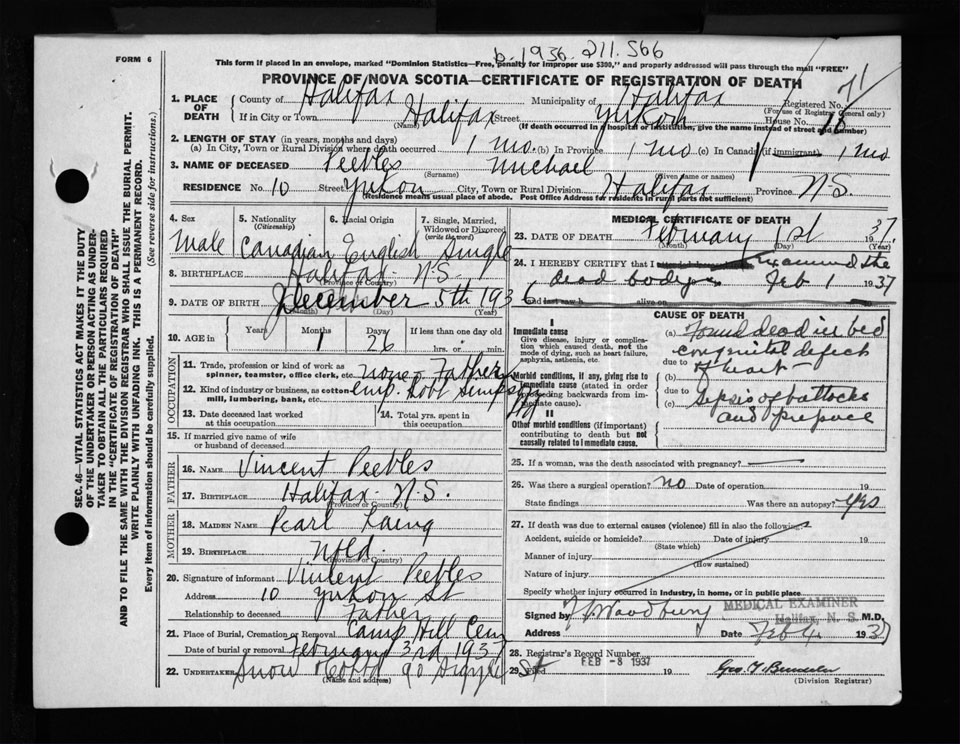 b. 1936. 211.566
FORM 6
This form if placed in an envelope, marked "Dominion Statistics—Free, penalty for improper use $300," and properly addressed will pass through the mail "FREE"
PROVINCE OF NOVA SCOTIA—CERTIFICATE OF REGISTRATION OF DEATH
SEC. 46—VITAL STATISTICS ACT MAKES IT THE DUTY
OF THE UNDERTAKER OR PERSON ACTING AS UNDER-
TAKER TO OBTAIN ALL THE PARTICULARS REQUIRED
IN THE "CERTIFICATE OF REGISTRATION OF DEATH"
AND TO FILE THE SAME WITH THE DIVISION REGISTRAR WHO SHALL ISSUE THE BURIAL PERMIT.
WRITE PLAINLY WITH UNFADING INK. THIS IS A PERMANENT RECORD.
Every item of information should be carefully supplied. (See reverse side for instructions.)
1. PLACE OF DEATH County of Halifax Municipality of Halifax Registered No. 71
(For use of Registrar General only)
If in City or Town Halifax Street Yukon House No. 18
(Name) (If death occurred in a hospital or institution, give the name instead of street and number)
2. LENGTH OF STAY (in years, months and days)
(a) In City, Town or Rural Division where death occurred 1 mo. (b) In Province 1 mo (c) In Canada (if immigrant) 1 mo
3. NAME OF DECEASED Peebles Michael
(Surname) (Given name or names)
RESIDENCE No. 10 Street Yukon City, Town or Rural Division Halifax Province N.S.
(Residence means usual place of abode. Post Office Address for residents in rural parts not sufficient)
4. Sex
Male
5. Nationality
(Citizenship)
Canadian
6. Racial Origin
English
7. Single, Married,
Widowed or Divorced
(write the word)
Single
8. BIRTHPLACE Halifax N.S.
(Province or Country)
9. DATE OF BIRTH December 5th 1936
(Month) (Day) (Year)
10. AGE in Years Months 1 Days 26 If less than one day old
hrs. or min.
OCCUPATION
11. Trade, profession or kind of work as
spinner, teamster, office clerk, etc. none - Father
12. Kind of industry or business, as cotton
mill, lumbering, bank, etc. emp. Robt Simpson
13. Date deceased last worked
at this occupation
14. Total yrs. spent in
this occupation
15. If married give name of wife
or husband of deceased
FATHER
16. NAME Vincent Peebles
17. BIRTHPLACE Halifax - N.S.
(Province or Country)
MOTHER
18. MAIDEN NAME Pearl Laing
19. BIRTHPLACE Nfld.
(Province or Country)
20. Signature of informant Vincent Peebles
Address 10 Yukon St
Relationship to deceased Father
21. Place of Burial, Cremation or Removal Camp Hill Cem
Date of burial or removal February 3rd 1937
22. UNDERTAKER Snow 90 Argyle St
(Name and address)
MEDICAL CERTIFICATE OF DEATH
23. DATE OF DEATH February 1st 1937.
(Month) (Day) (Year)
24. I HEREBY CERTIFY that I examined the
dead body Feb 1 1937
and last saw h alive on
CAUSE OF DEATH
I
Immediate cause
Give disease, injury or complica-
tion which caused death, not the
mode of dying, such as heart failure,
asphyxia, asthenia, etc.
(a) Found dead in bed
congenital defect
due to of heart—
Morbid conditions, if any, giving rise to
immediate cause (stated in order
proceeding backwards from im-
mediate cause).
(b)
due to
(c) Sepsis of buttocks
and prepuce
II
Other morbid conditions (if important)
contributing to death but not
causally related to immediate cause.
25. If a woman, was the death associated with pregnancy?
26. Was there a surgical operation? no Date of operation 19
State findings Was there an autopsy? Yes
27. If death was due to external causes (violence) fill in also the following:
Accident, suicide or homicide? Date of injury 19
(State which)
Manner of injury
(How sustained)
Nature of injury
Specify whether injury occurred in industry, in home, or in public place
MEDICAL EXAMINER
Halifax, N. S.
Signed by Woodbury M.D.
Address Date Feb 4 1937
28. Registrar's Record Number
29. Filed FEB -8 1937 19
(Division Registrar)